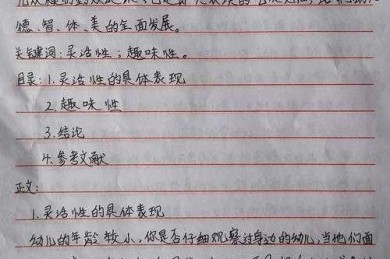 德、智、体、美的全面发展。
关键词:灵活性;趣味性。
目录:1.灵活性的具体表现
2.趣味性
3.结论
4.参考文献
正文:
1.灵活性的具体表现
幼儿的年龄较小,你是否仔细观察过身边的幼儿,当他们面